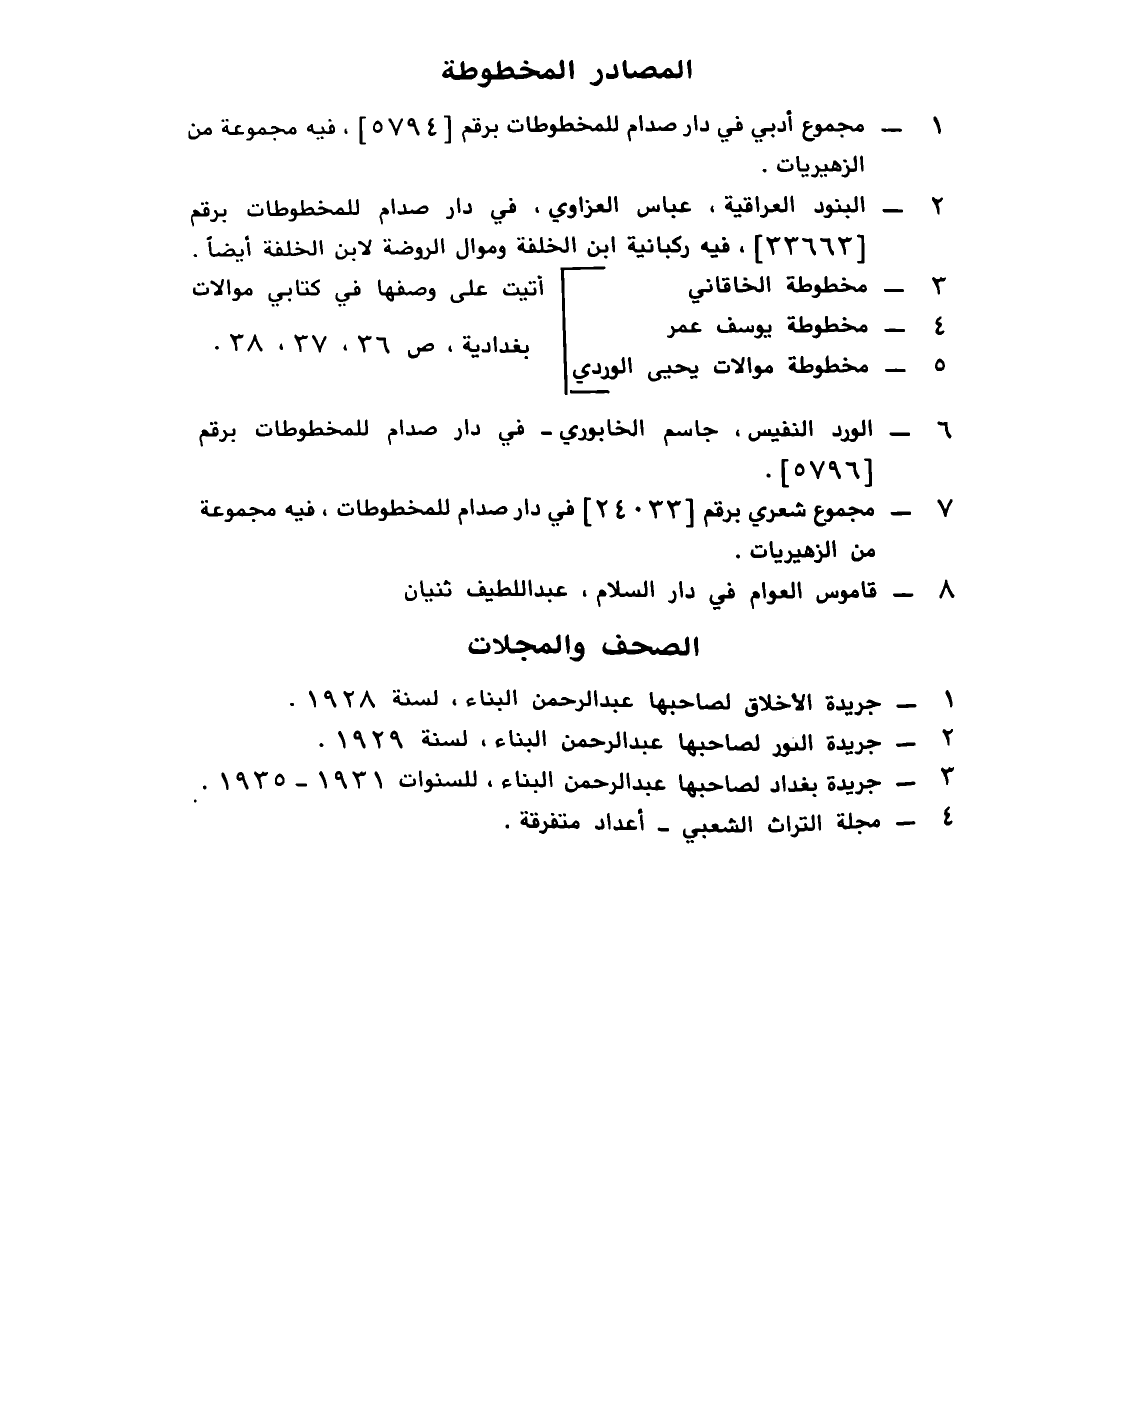 المصادر المخطوطة
١ — مجموع أدبي في دار صدام للمخطوطات برقم [٥٧٩٤] ، فيه مجموعة من
الزهيريات .
٢ — البنود العراقية ، عباس العزاوي ، في دار صدام للمخطوطات برقم
[٣٣٦٦٣] ، فيه ركبانية ابن الخلفة وموال الروضة لابن الخلفة أيضاً .
٣ — مخطوطة الخاقاني
٤ — مخطوطة يوسف عمر
٥ — مخطوطة موالات يحيى الوردي
أتيت على وصفها في كتابي موالات
بغدادية ، ص ٣٦ ، ٣٧ ، ٣٨ .
٦ — الورد النفيس ، جاسم الخابوري - في دار صدام للمخطوطات برقم
[٥٧٩٦] .
٧ — مجموع شعري برقم [٢٤٠٣٣] في دار صدام للمخطوطات ، فيه مجموعة
من الزهيريات .
٨ — قاموس العوام في دار السلام ، عبداللطيف ثنيان
الصحف والمجلات
١ — جريدة الأخلاق لصاحبها عبدالرحمن البناء ، لسنة ١٩٢٨ .
٢ — جريدة النور لصاحبها عبدالرحمن البناء ، لسنة ١٩٢٩ .
٣ — جريدة بغداد لصاحبها عبدالرحمن البناء ، للسنوات ١٩٣١ - ١٩٣٥ .
٤ — مجلة التراث الشعبي - أعداد متفرقة .